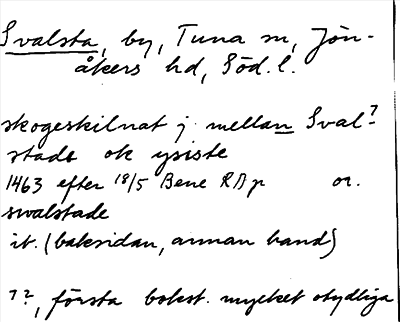 Svalsta, by, Tuna sn, Jön-
åkers hd, Söd. l.
skogeskilnat j mellan Sval-?
stade ok ysiste
1463 efter 18/5 Bene RBp or.
swalstade
it. (baksidan, annan hand)
??, första bokst. mycket otydliga